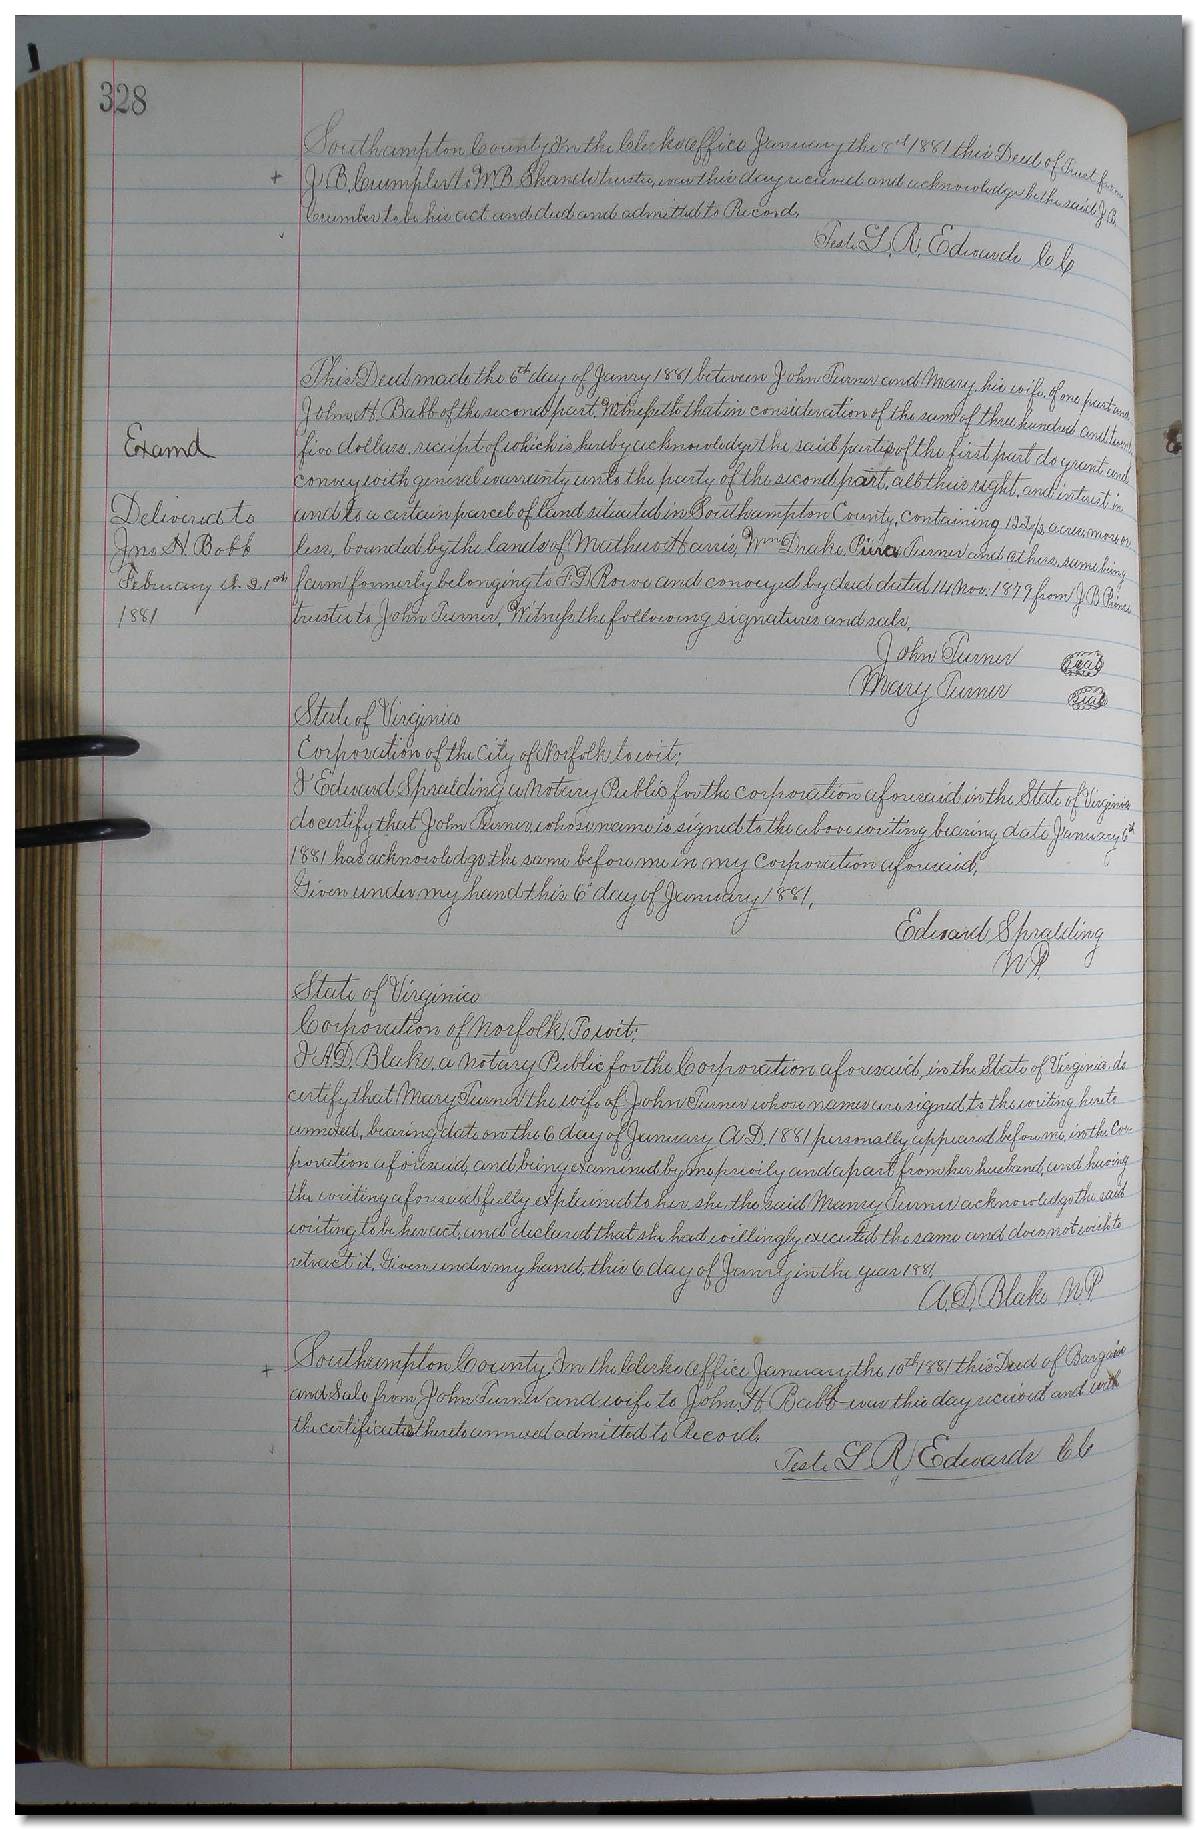 328
Southampton County In the Clerks office January the 8th 1881 this Deed of Trust from
J. B. Crumpler to W B Shands trustee, was this day received and acknowledge by the said J. B.
Crumber to be his act and deed and admitted to Record.
Teste L. R. Edwards C C
This Deed made the 6th day of Janry 1881 between John Turner and Mary his wife, of one part and
John, H. Babb of the second part, Witnesseth that in consideration of the sum of three hundred and twenty
five dollars, receipt of which is hereby acknowledged the said parties of the first part do grant and
Examd
convey with general warranty unto the party of the second part, all their right, and interest in
Delivered to
and to a certain parcel of land situated in Southampton County, containing 122½ acres, more or
Jno H Babb
less, bounded by the lands of Mathew Harris, Wm Drake, Turner and others, same being
February th 21st
farm formerly belonging to F. G. Rowe and conveyed by deed dated 14 Nov. 1879 from J B Prince
1881
trustee to John Turner, Witness the following signatures and seals.
John Turner Seal
Mary Turner Seal
State of Virginia
Corporation of the City of Norfolk to wit;
I Edward Spralding a Notary Public for the corporation aforesaid in the State of Virginia
do certify that John Turner whose name is signed to the above writing bearing date January 6th
1881 has acknowledge the same before me in my corporation aforesaid.
Given under my hand this 6" day of January 1881,
Edward Spralding
N P.
State of Virginia
Corporation of Norfolk, To wit;
I A.D. Blake, a Notary Public for the Corporation aforesaid, in the State of Virginia do
certify that Mary Turner the wife of John Turner whose names are signed to the writing hereto
annexed, bearing date on the 6 day of January A.D. 1881 personally appeared before me, in the Cor-
poration aforesaid, and being examined by me privily and apart from her husband, and having
the writing aforesaid fully explained to her, she, the said Manry Turner acknowledge the said
writing to be her act, and declared that she had willingly executed the same and does not wish to
retract it, Given under my hand, this 6 day of Janry in the year 1881
A. D. Blake N. P
Southampton County In the Clerks office January the 10th 1881 this Deed of Bargain
and Sale from John Turner and wife to John, H. Babb was this day received and with
the certificates thereto annexed admitted to Record.
Teste L R Edwards C C